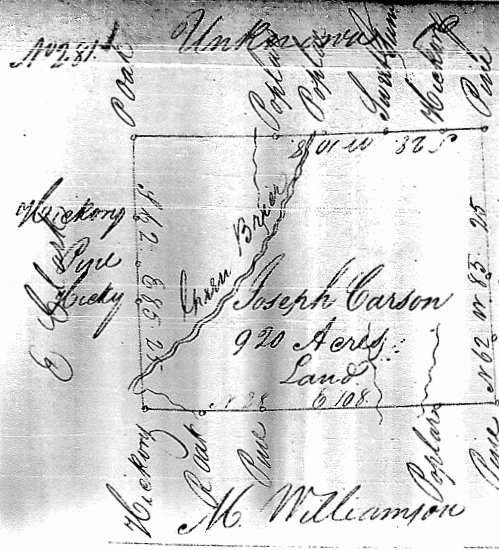 No 281
Unknown
P Oak
Poplar
Poplar
Sweetgum
Hickory
Pine
S 28 W 108
Hickory
Pine
Hicky
E Clark
S 62 E 85 25
Green Brier
Joseph Carson
920 Acres
Land
N 62 W 85 25
N 28 E 108
Hickory
R Oak
Pine
Poplar
Pine
M. Williamson